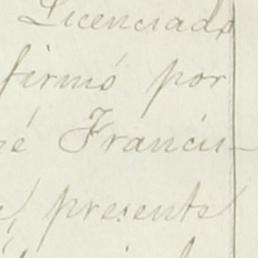 Licenciado
firmó por
sé Francis-
presente